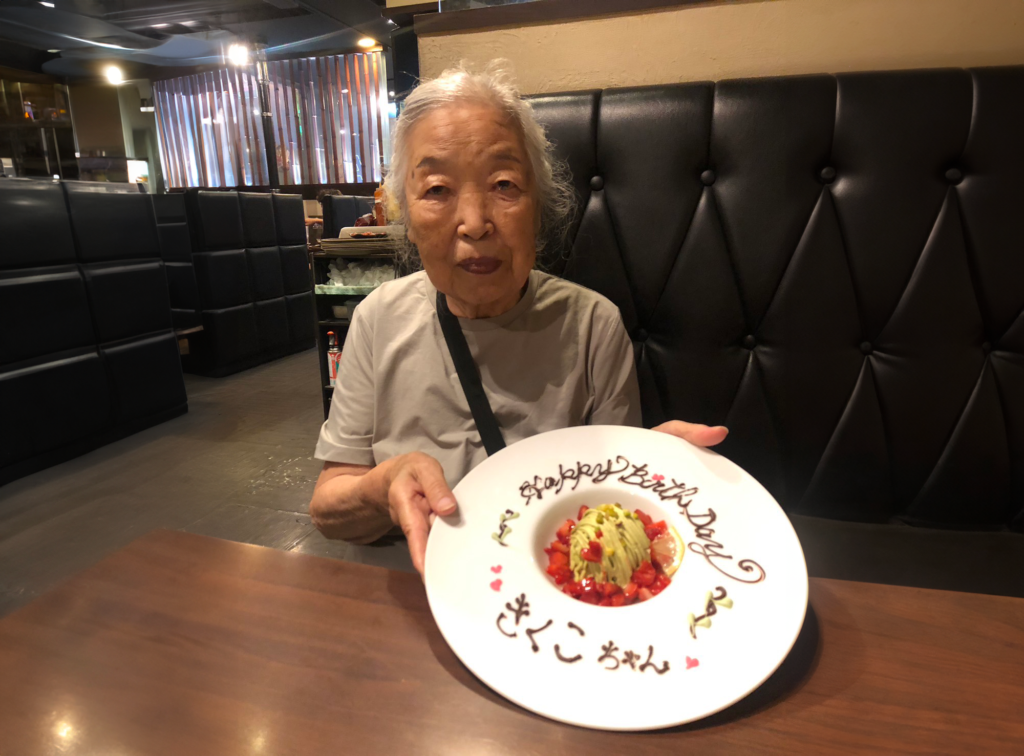 Happy Birth Day
きくこちゃん